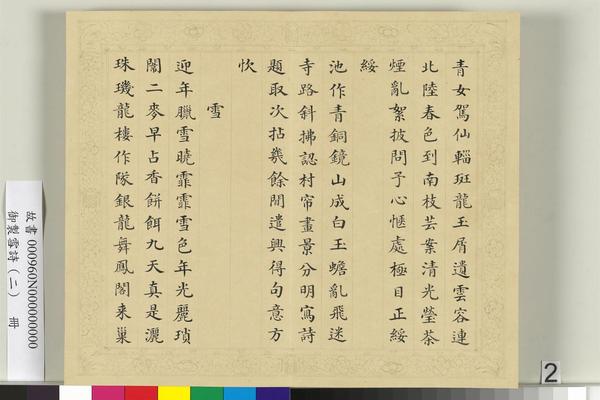 青女駕仙輜斑龍玉屑遺雲容連
北陸春色到南枝芸案清光瑩茶
煙亂絮披問予心愜處極目正綏
綏
池作青銅鏡山成白玉蟾亂飛迷
寺路斜拂認村帘畫景分明寫詩
題取次拈幾餘閒遣興得句意方
忺
雪
迎年臘雪曉霏霏雪色年光麗瑣
闈二麥早占香餅餌九天真是灑
珠璣龍樓作隊銀龍舞鳳閣來巢
故書 000960N000000000
御製雪詩(二) 冊
2